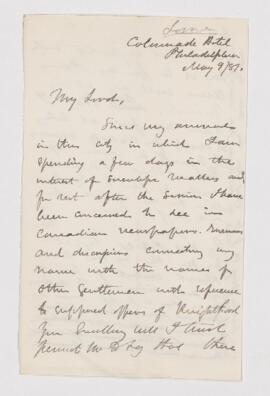 Colonnade Hotel
Philadelphia
May 9/87.
My Lord,
Since my arrival
in this city in which I am
spending a few days in the
interest of matters and
for rest after the Session I have
been concerned to see in
Canadian newspapers rumours
and connecting my
name with the names of
other gentlemen with reference
to supposed offers of Knighthood
Your Excellency will I trust
permit me to say that these